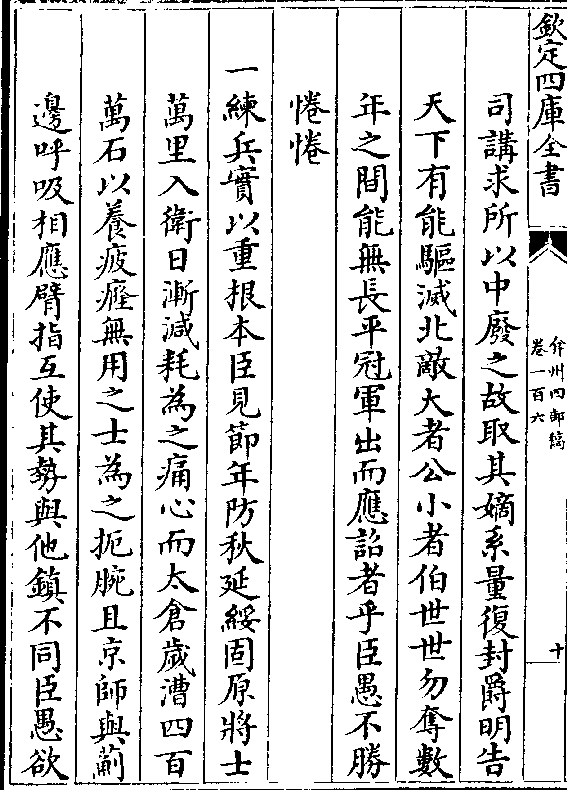 欽定四庫全書
弇州四部稿
卷一百六
十
司講求所以中廢之故取其嫡系量復封爵明告
天下有能驅滅北敵大者公小者伯世世勿奪數
年之間能無長平冠軍出而應詔者乎臣愚不勝
惓惓
一練兵實以重根本臣見節年防秋延綏固原將士
萬里入衛日漸減耗為之痛心而太倉歲漕四百
萬石以養疲癃無用之士為之扼腕且京師與薊
邊呼吸相應臂指互使其勢與他鎮不同臣愚欲